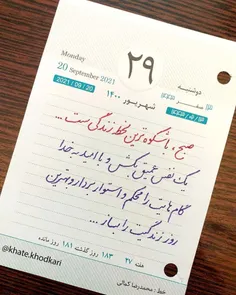 Monday
20 September 2021
2021 / 09 / 20
۲۹
شهریور ۱۴۰۰
دوشنبه
صفر
صبح، باشکوه ترین لحظه زندگی ست...
یک نفس عمیق بکش و با امید به خدا
گام هایت را محکم و استوار بردار و بهترین
روز زندگیت را بساز...
هفته ۲۷ ۱۸۳ روز گذشته ۱۸۱ روز مانده
@khate.khodkari
خط: محمدرضا کمالی